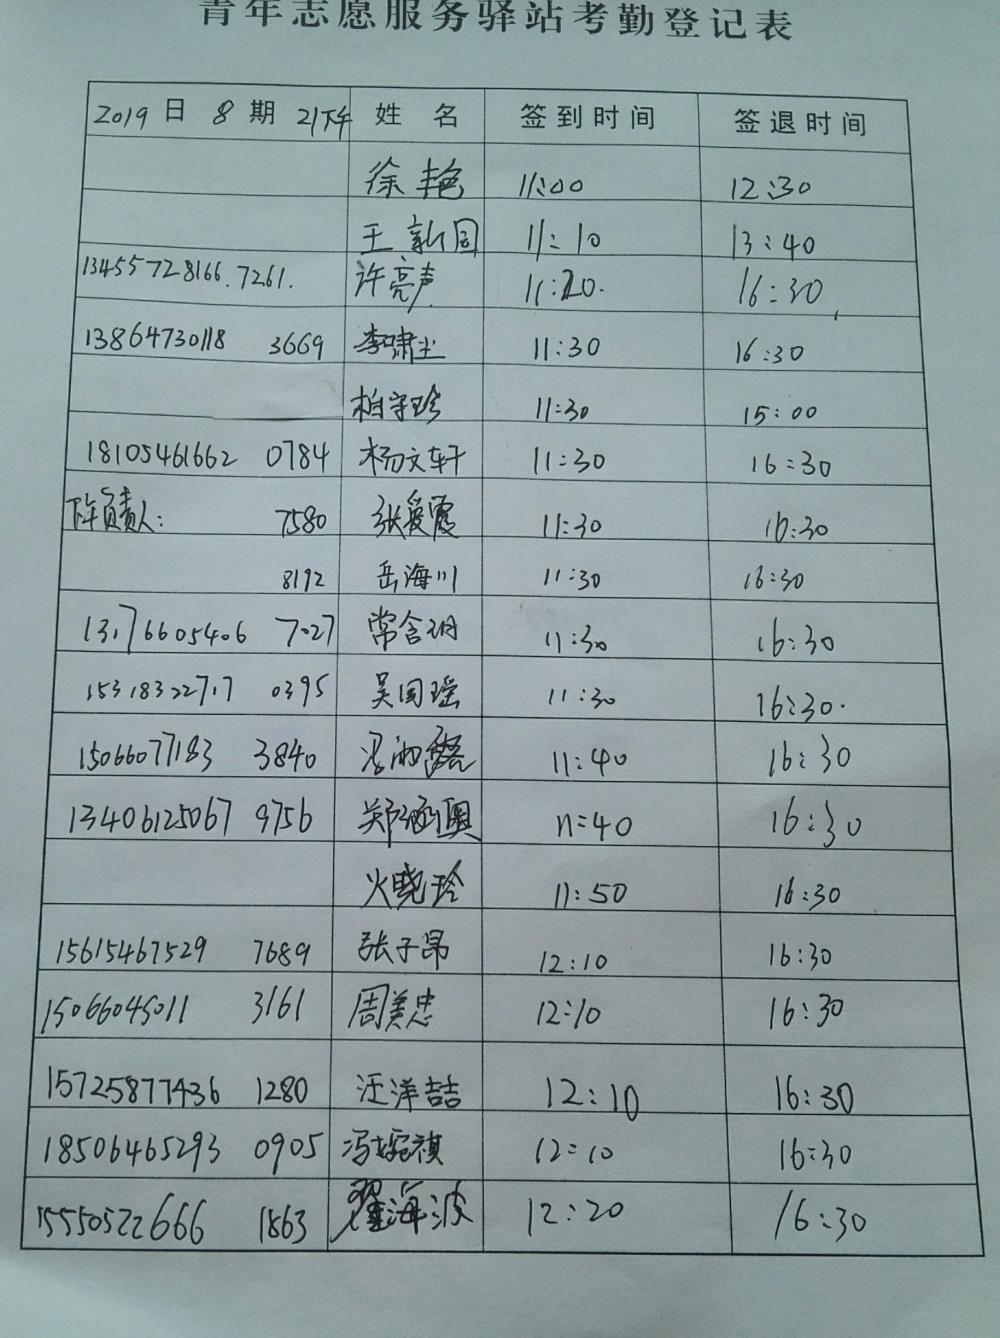 青年志愿服务驿站考勤登记表
2019 日 8 期 21下午 姓 名 签到时间 签退时间
徐艳 11:00 12:30
王新国 11:10 13:40
13455728166.7261. 许亮声 11:20. 16:30
13864730118 3669 李啸尘 11:30 16:30
柏守珍 11:30 15:00
18105461662 0784 杨文轩 11:30 16:30
下午负责人: 7580 张爱霞 11:30 16:30
8192 岳海川 11:30 16:30
13176605406 7027 常含玥 11:30 16:30
15318322717 0395 吴国瑶 11:30 16:30.
15066077183 3840 11:40 16:30
13406125067 9756 郑涵奥 11:40 16:30
火晓玲 11:50 16:30
15615467529 7689 张子昂 12:10 16:30
15066045011 3161 周美忠 12:10 16:30
15725877436 1280 汪洋喆 12:10 16:30
18506465293 0905 冯婉祺 12:10 16:30
15550522666 1863 翟海波 12:20 16:30